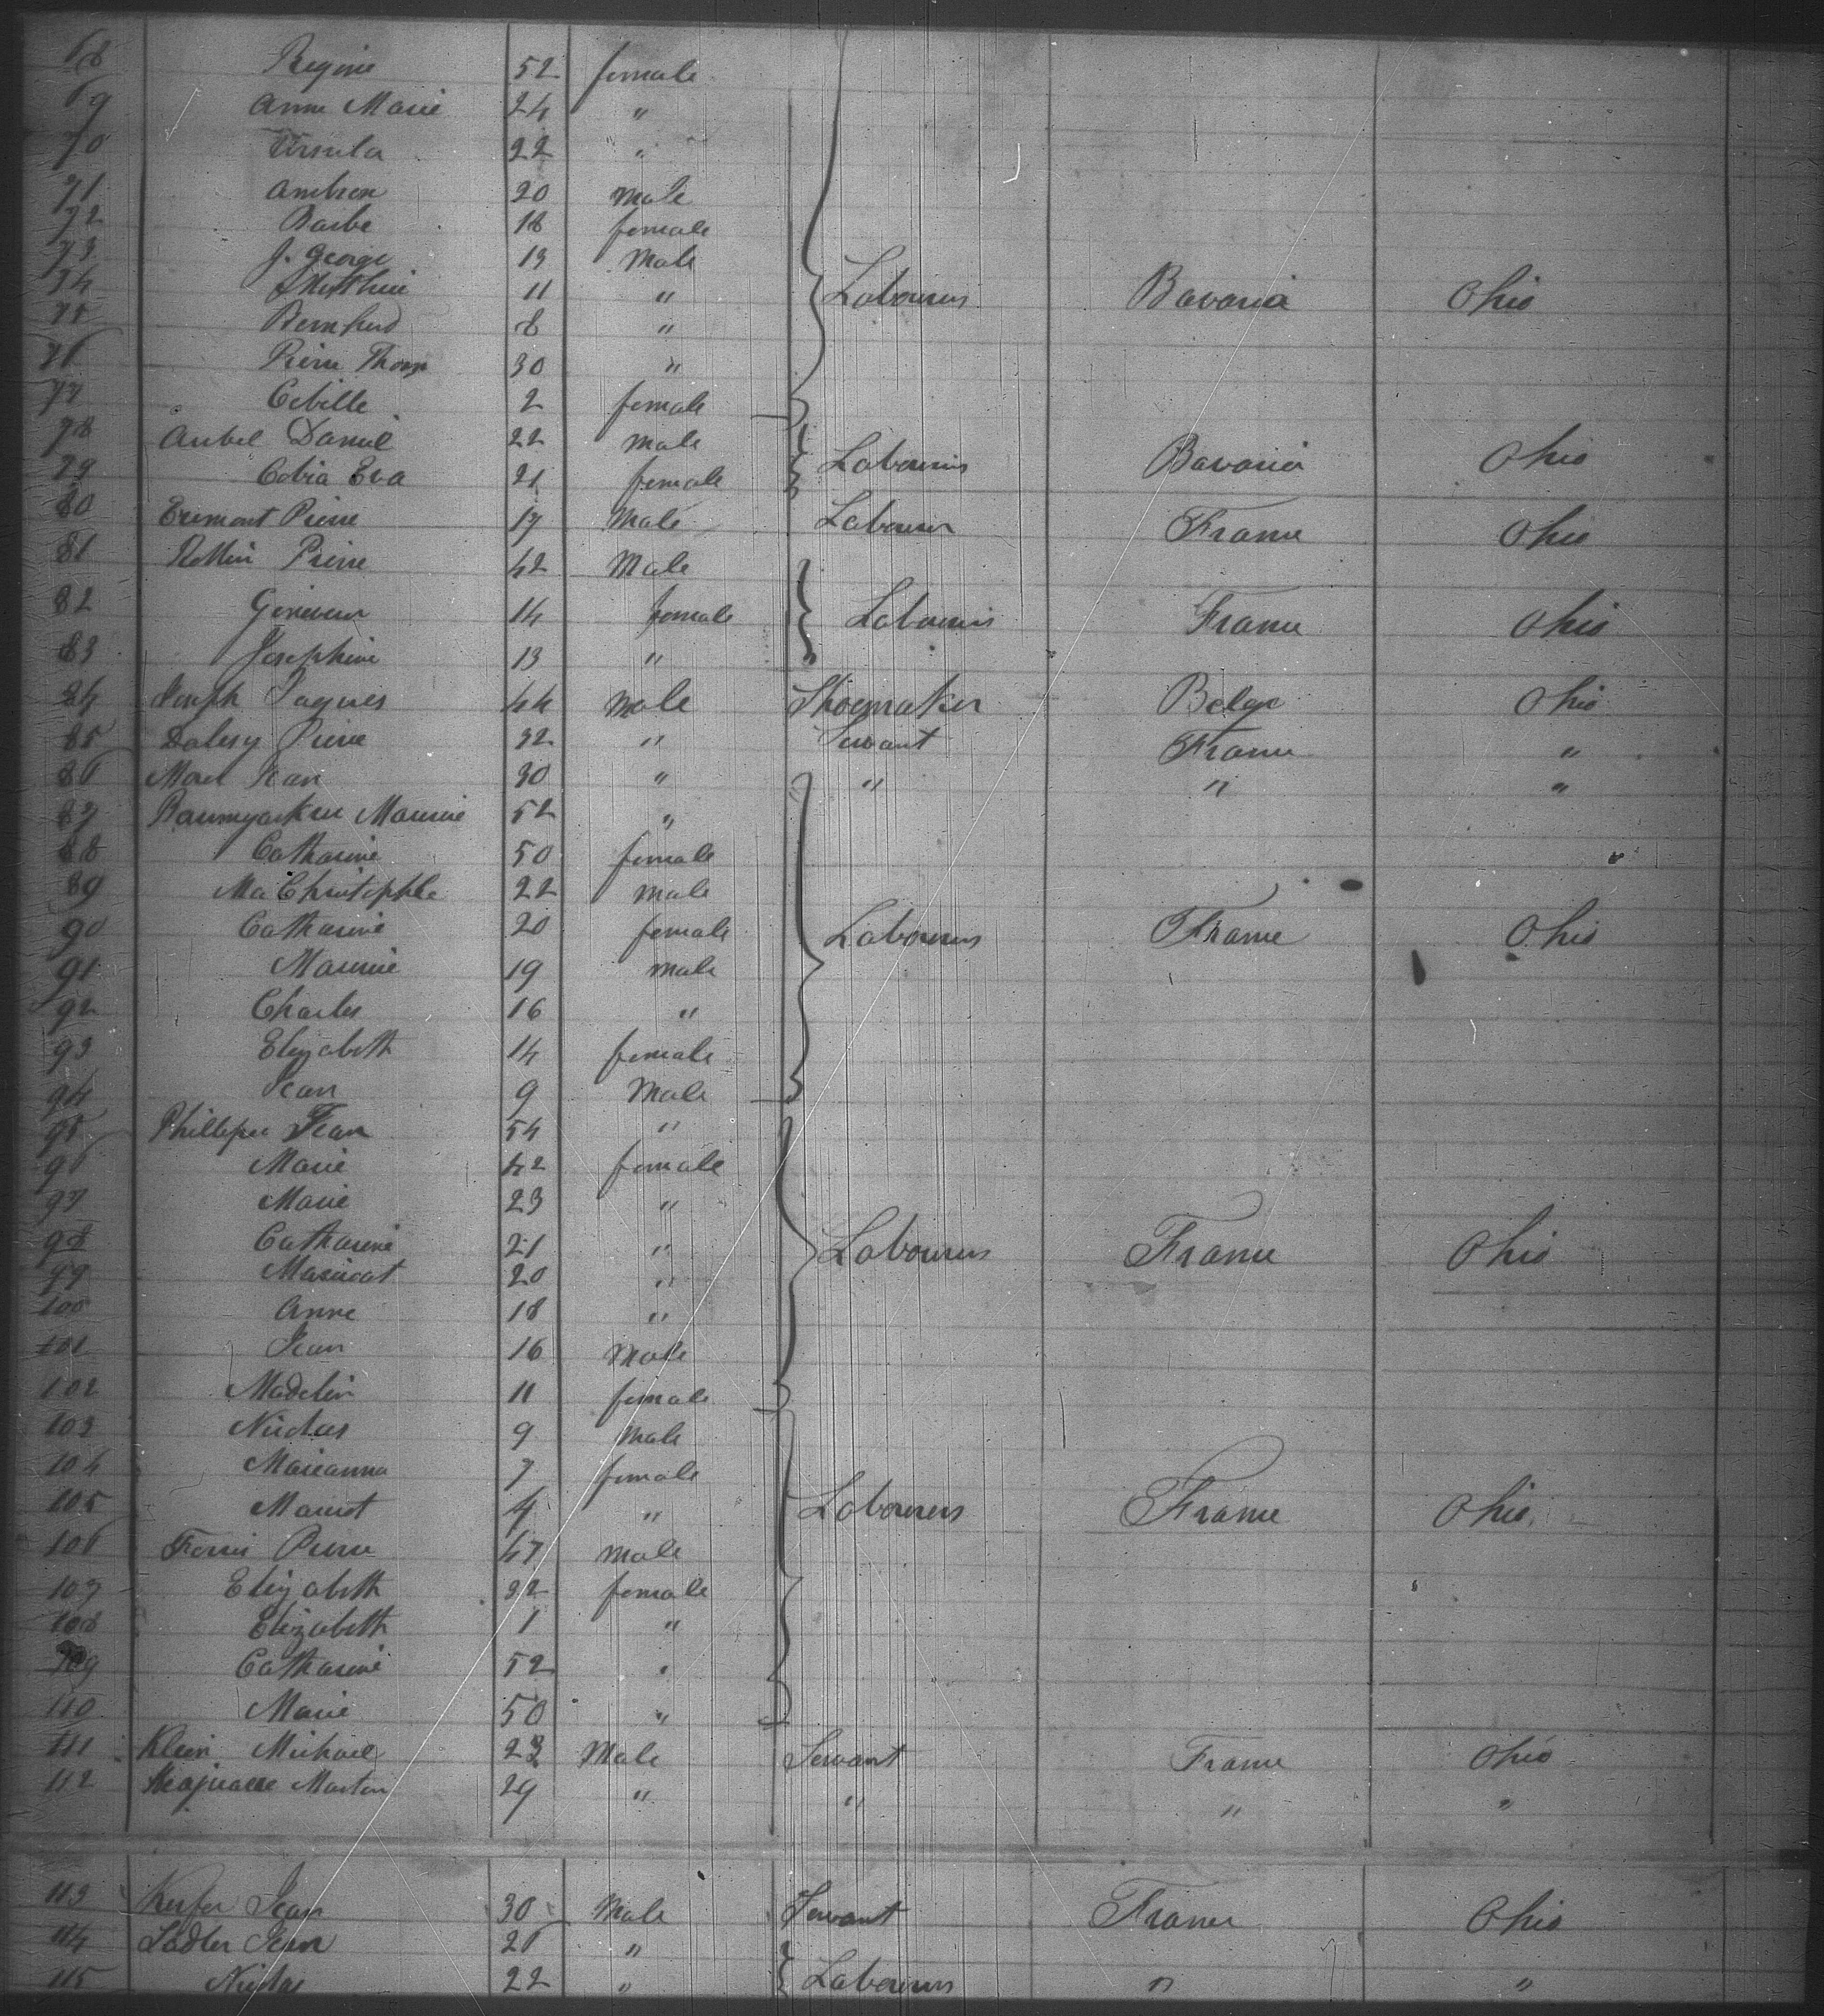 68 Regine 52 female
69 Anne Marie 24 "
70 Ursula 22 "
71 Ambrose 20 male
72 Barbe 18 female
73 J. George 13 Male
74 Matthieu 11 " Labourers Bavaria Ohio
75 Bernhard 8 "
76 Pierre Thomas 30 "
77 Cebille 2 female
78 Aubel Daniel 22 male
79 Eva 21 female Labourers Bavaria Ohio
80 Pierre 17 Male Labourer France Ohio
81 Pierre 42 Male
82 14 female Labourers France Ohio
83 Josephine 13 "
84 Joseph Jaques 44 male Shoemaker Belge Ohio
85 Pierre 32 " Servant France "
86 Jean 30 " " " "
87 Baumgarten Maurice 52 "
88 Catharine 50 female
89 Christophle 22 male
90 Catharine 20 female Labourers France Ohio
91 Maurice 19 male
92 Charles 16 "
93 Elizabeth 14 female
94 Jean 9 Male
95 Jean 54 "
96 Marie 42 female
97 Marie 23 "
98 Catharine 21 " Labourers France Ohio
99 20 "
100 Anne 18 "
101 Jean 16 Male
102 Madelin 11 female
103 Nicolas 9 Male
104 Marianna 7 female
105 4 " Labourers France Ohio
106 Pierre 47 male
107 Elizabeth 32 female
108 Elizabeth 1 "
109 Catharine 52 "
110 Marie 50 "
111 Klein Michael 23 Male Servant France Ohio
112 Martin 29 " " " "
113 Jean 30 Male Servant France Ohio
114 Sadler Jean 26 "
115 Nicolas 22 " Labourers " "